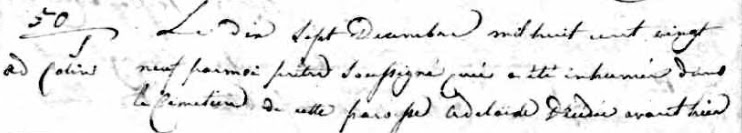 50
Le dix Sept Decembre mil huit cent vingt
ad Colin neuf par moi prêtre Soussigné Curé a été inhumée dans
le Cimetiere de cette paroisse Adelaide Decedée avant hier